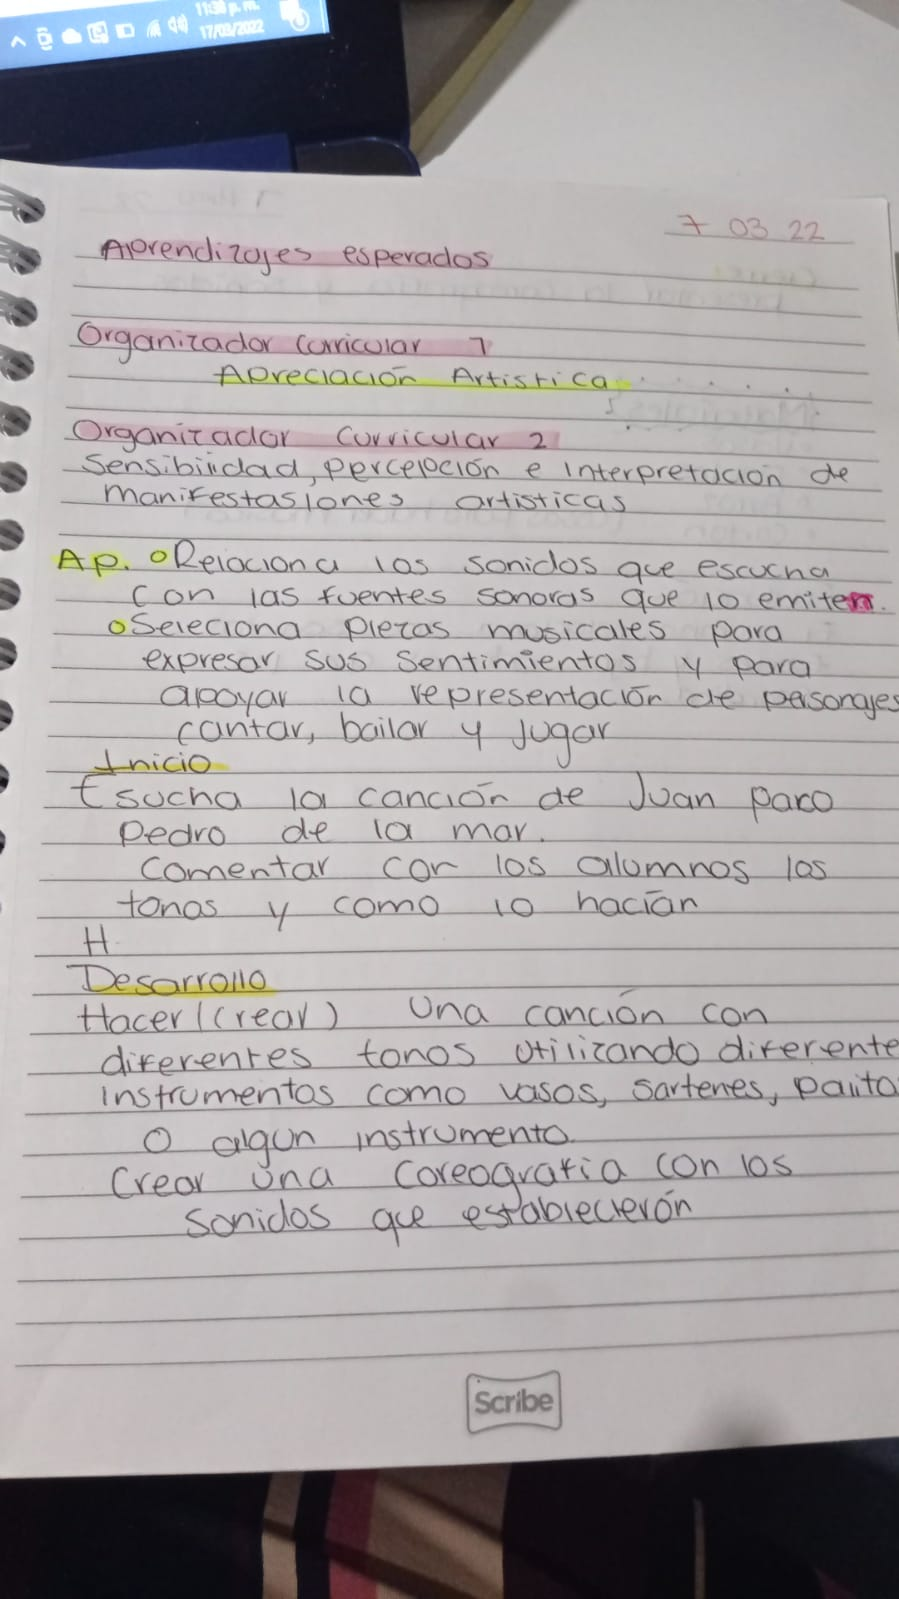 11:38 p. m.
17/03/2022
7 03 22
Aprendizajes esperados
Organizador Curricular 1
Apreciación Artistica
Organizador Curricular 2
Sensibilidad, percepción e interpretación de
manifestasiones artisticas
Ap. Relaciona los sonidos que escucha
con las fuentes sonoras que lo emiten.
Seleciona piezas musicales para
expresar sus sentimientos y para
apoyar la representación de pesonajes
cantar, bailar y Jugar
Inicio
Esucha la canción de Juan paco
Pedro de la mar.
Comentar con los alumnos los
tonos y como lo hacían
H.
Desarrollo
Hacer (crear) Una canción con
diferentes tonos utilizando diferente
instrumentos como vasos, sartenes, palito
O algun instrumento.
Crear una coreografia con los
sonidos que establecierón
Scribe